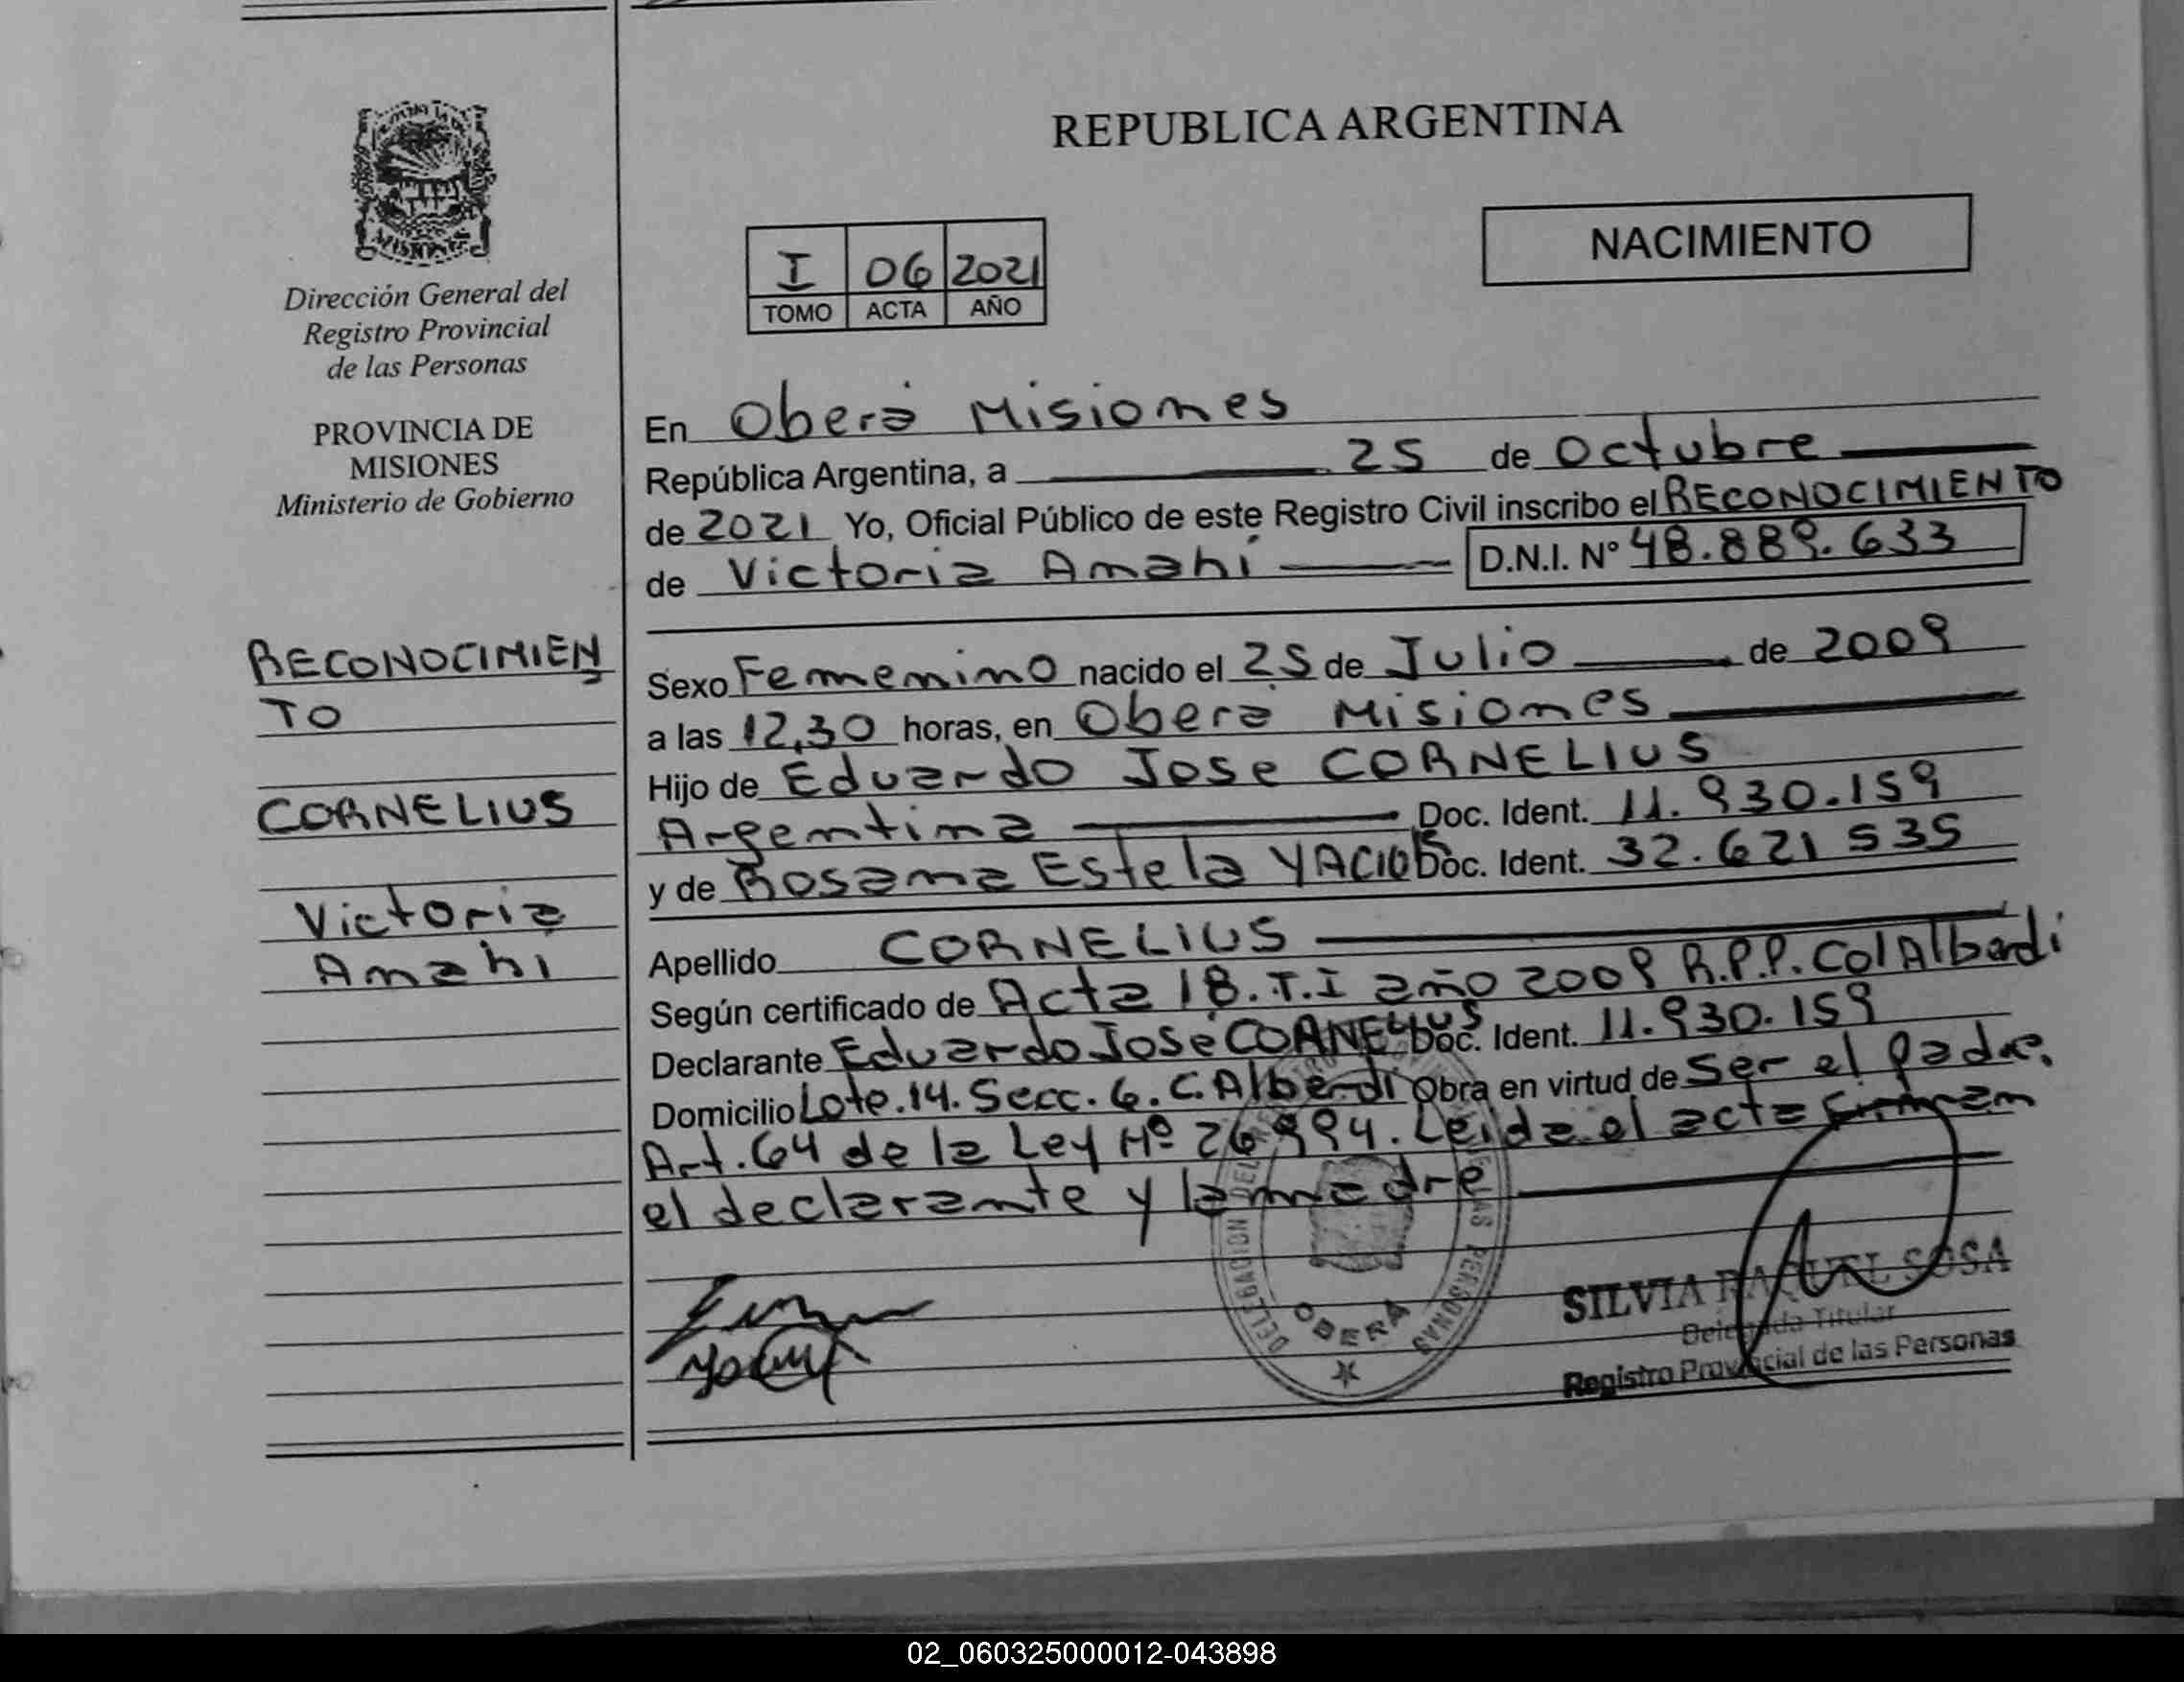 Dirección General del
Registro Provincial
de las Personas
PROVINCIA DE
MISIONES
Ministerio de Gobierno
RECONOCIMIEN
TO
CORNELIUS
Victoria
Anahi
REPUBLICA ARGENTINA
NACIMIENTO
I 06 2021
TOMO ACTA AÑO
En Oberá Misiones
República Argentina, a 25 de Octubre
de 2021 Yo, Oficial Público de este Registro Civil inscribo el RECONOCIMIENTO
de Victoria Anahí D.N.I. Nº 48.889.633
Sexo Femenino nacido el 25 de Julio de 2009
a las 12,30 horas, en Oberá Misiones
Hijo de Eduardo Jose CORNELIUS
Argentina Doc. Ident. 11.930.159
y de Rosana Estela Doc. Ident. 32.621 535
Apellido CORNELIUS
Según certificado de Acta 18. T.I año 2009 R.P.P. Col Alberdi
Declarante Eduardo José CORNELIUS Doc. Ident. 11.930.159
Domicilio Lote.14. Secc. 6. C. Alberdi Obra en virtud de Ser el Padre.
Art. 64 de la Ley Nº 26.994. Leída el acta Firman
el declarante y la madre
DELEGACION DEL PERSONAS
OBERA
SILVIA RAQUEL SOSA
Delegada Titular
Registro Provincial de las Personas
02_060325000012-043898